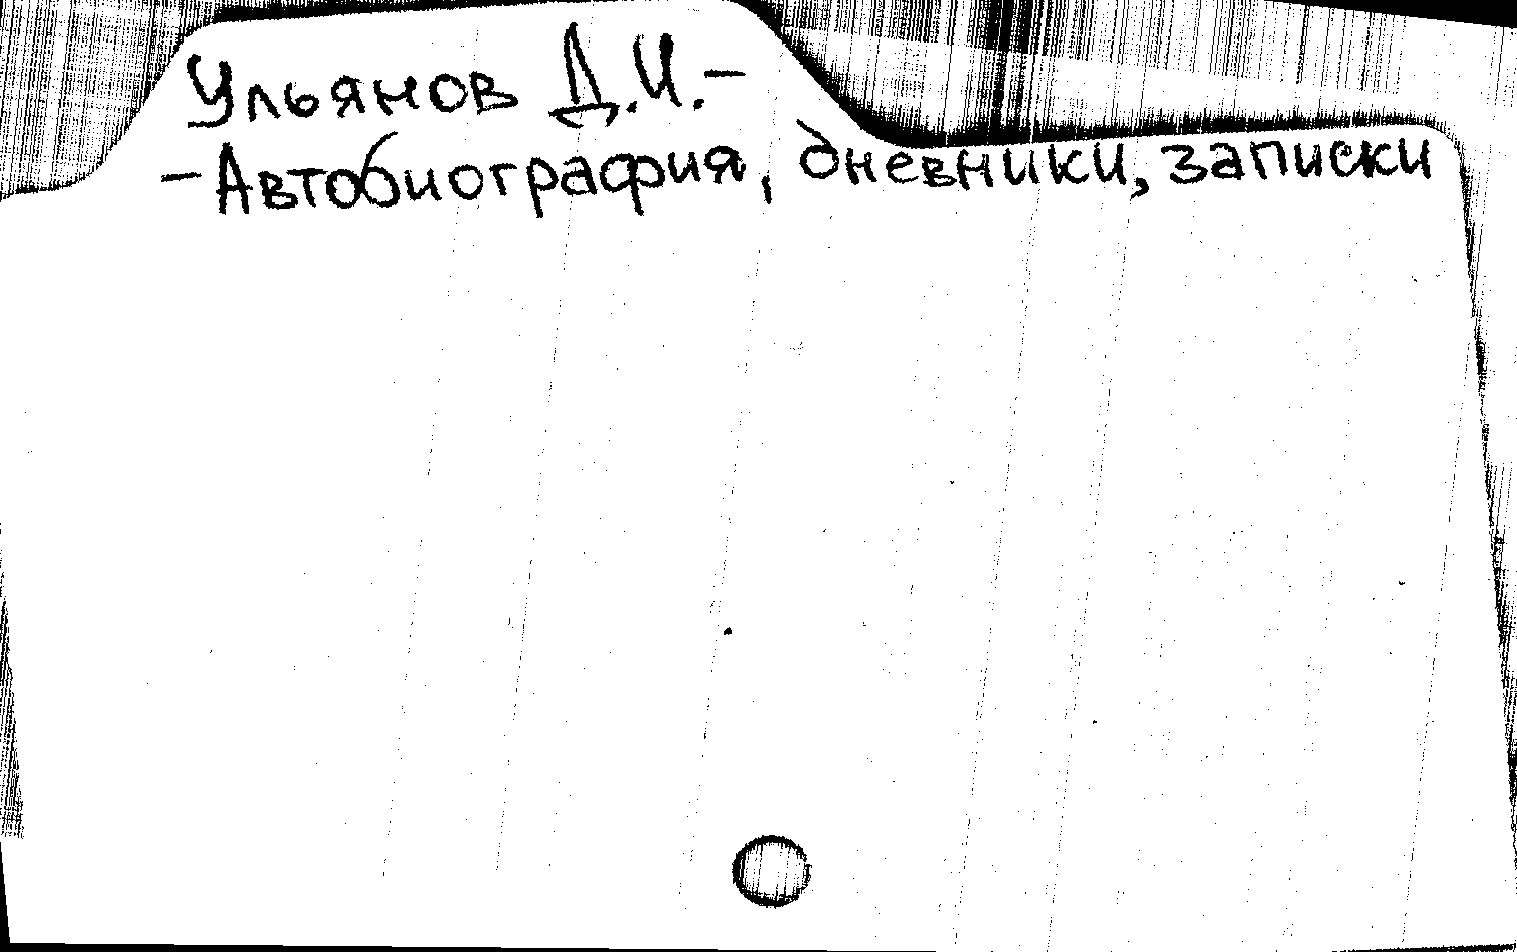 Ульянов Д.И.-
-Автобиография, дневники, записки